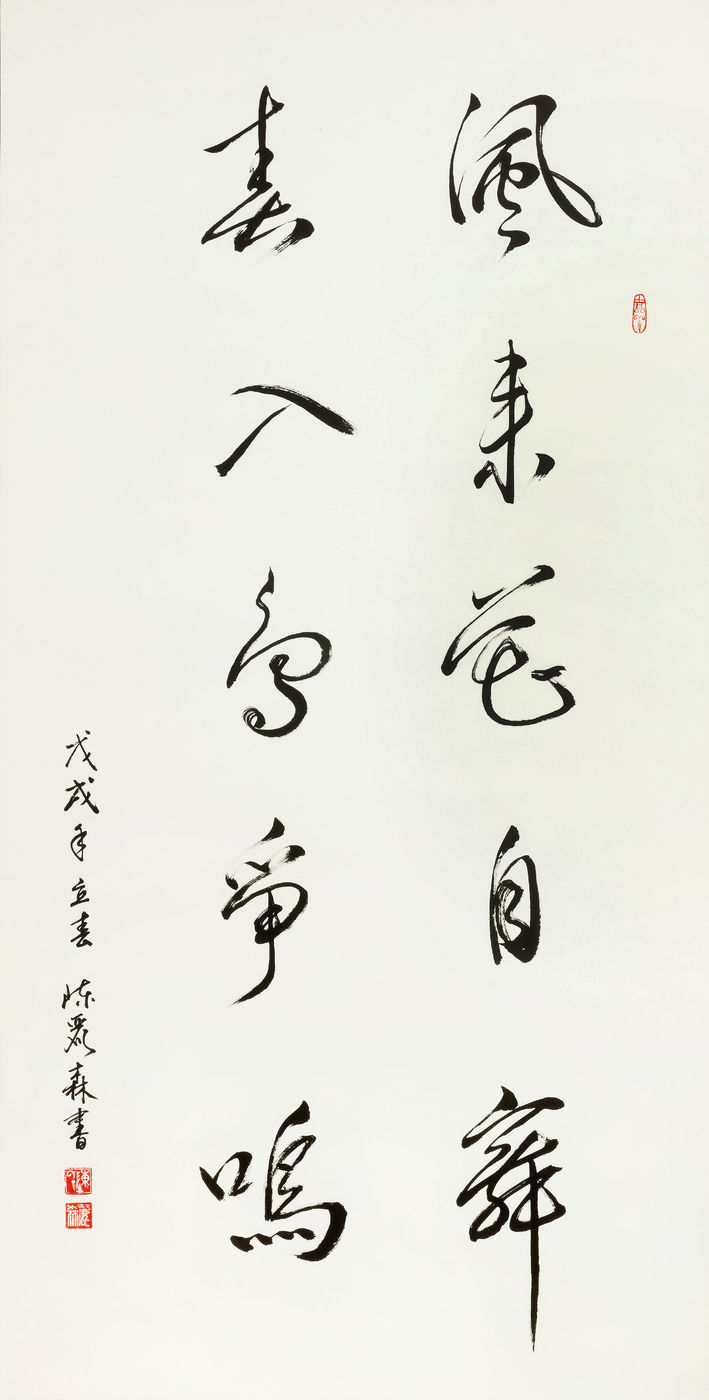 風来花自舞
春入鳥爭鳴
戊戌年立春 陈麗森書